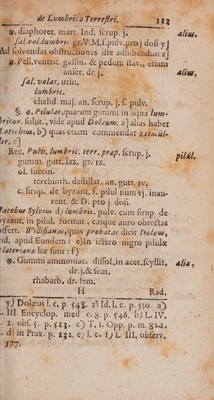 de Lumbrico Terrestri. 113
℞. diaphoret. mars. Ind. scrup. j. alius,
sal. vol. lumbric. gr. V. M. f. pulv. pro j dosi y)
Ad solvendas obstructiones iste adhibendus: z)
℞. Pell. ventric. gallin. & pedum itav., etiam
anser. dr. j. alius,
sal. volat. urin.
lumbric.
chelid. maj. an. scrup. j. f. pulv.
§. 4. Pilulas, quarum gummi in aqua lum-
bricor. solut., vide apud Dolæum: a) alias habet
b) quas etiam commendat
c)
Rec. Pulv. lumbric. terr. præp. scrup. j. pilul.
gumm. gutt. lax. gr. ix.
ol. succin.
terebinth. destillat. an. gutt. iv.
c. sirup. de byrant. f. pilul num vj. inau-
rent. & D. pro j. dosi.
Jacobus Sylvius d) lumbric. pulv. cum sirup. de
byzant, in pilul. format, easque auro obtectas
offert. quas probatas dicit Dolæus,
id. apud Eundem: e) In ictero nigro pilulæ
hæ sunt: f)
℞. Gummi ammoniac. dissol. in acet. scyllit. alia,
dr. j. & sem.
rhabarb. dr. sem.
H Rad.
y) Dolæus l. c. p. 548. z) Id. l. c. p. 550. a)
L. III Encyclop. med c. 8. p. 546. b) L. IV.
2. obs. 5. p. 523. c) T. 1. Opp. p. m. 824.
d) in Prax. p. 232. e) l. c. f) L. III. observ.
177.